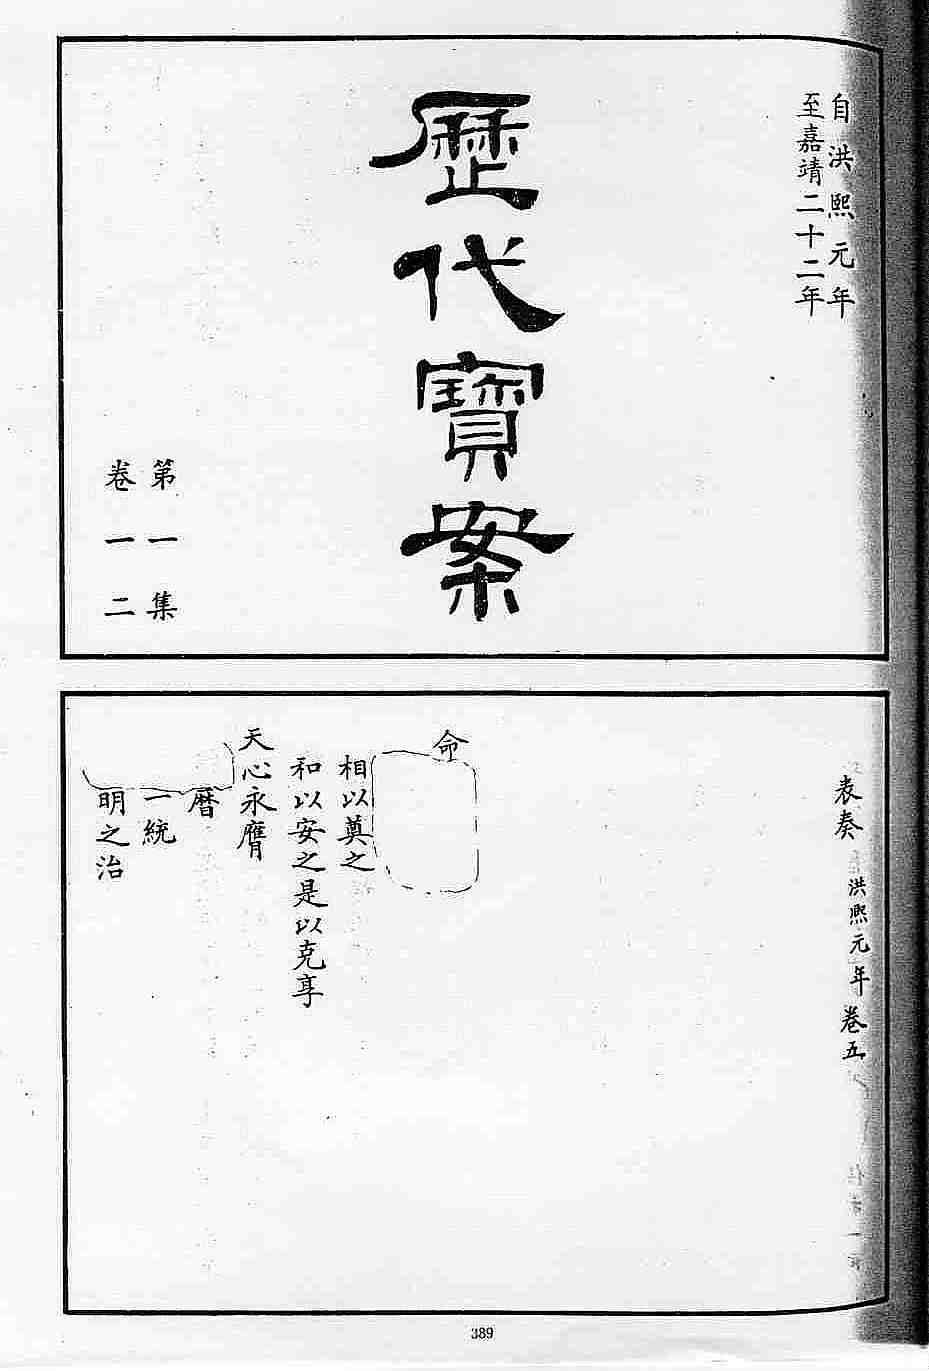 自洪熙元年
至嘉靖二十二年
歷代寶案
第一集
卷一二
表奏 洪熙元年 卷五
命
相以奠之
和以安之是以克享
天心永膺
曆
一統
明之治
389